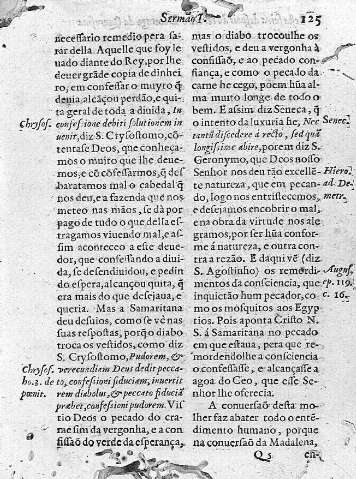 Sermaõ I. 125
necessario remedio pera sa-
rar della. Aquelle que foy le
uado diante do Rey, por lhe
deuer grãde copia de dinhei
ro, em confessar o muyto q̃
deuia, alcãçou perdão, e qui-
ta geral de toda a diuida, In
Chrysos.
confessione debiti solutionem in
uenit, diz S. Crysostomo, cõ-
tentase Deos, que conheça-
mos o muito que lhe deue-
mos, e cõ cõfessarmos, q̃ des
baratamos mal o cabedal q̃
nos deu, e a fazenda que nos
meteo nas mãos, se dà por
pago de tudo o que della es-
tragamos viuendo mal, e as-
sim aconteceo a este deue-
dor, que confessando a diui-
da, se desendiuidou, e pedin
do espera, alcançou quita, q̃
era mais do que desejaua, e
queria. Mas a Samaritana
deu desuios, como se vè nas
suas respostas, porq̃ o diabo
troca os vestidos, como diz
S. Crysostomo, Pudorem, &
Chrysos.
ho. 3. de
pœnit.
verecundiam Deus dedit pecca-
to, confessioni fiduciam, inuertit
rem diabolus, & peccato fiduciã
præbet, confessioni pudorem. Vis
tio Deos o pecado do cra-
mesim da vergonha, e a con
fissaõ do verde da esperança,
mas o diabo trocoulhe os
vestidos, e deu a vergonha à
confissaõ, e ao pecado con-
fiança, e como o pecado da
carne he cego, poem hũa al-
ma muito longe de todo o
bem. E assim diz Seneca, q̃
o intento da luxuria he, Nec
Senec.
tantũ discedere à recto, sed quã
longissime abire, porem diz S.
Geronymo, que Deos nosso
Hiero.
ad De-
metr.
Senhor nos deu tão excellẽ-
te natureza, que em pecan-
do, logo nos entristecemos,
e desejamos encobrir o mal,
e na obra da virtude nos ale
gramos, por ser hũa confor-
me á natureza, e outra con-
tra a rezão. E daqui vẽ (diz
S. Agostinho) os remordi-
Augus.
ep. 119.
c. 16.
mentos da consciencia, que
inquietão hum pecador, co-
mo os mosquitos aos Egyp
tios. Pois aponta Cristo N.
S. á Samaritana no pecado
em que estaua, pera que re-
mordendolhe a consciencia
o confessasse, e alcançasse a
agoa do Ceo, que esse Se-
nhor lhe oferecia.
A conuersaõ desta mo-
lher faz abater todo o entẽ-
dimento humano, porque
na conuersaõ da Madalena,
Q 3 en-